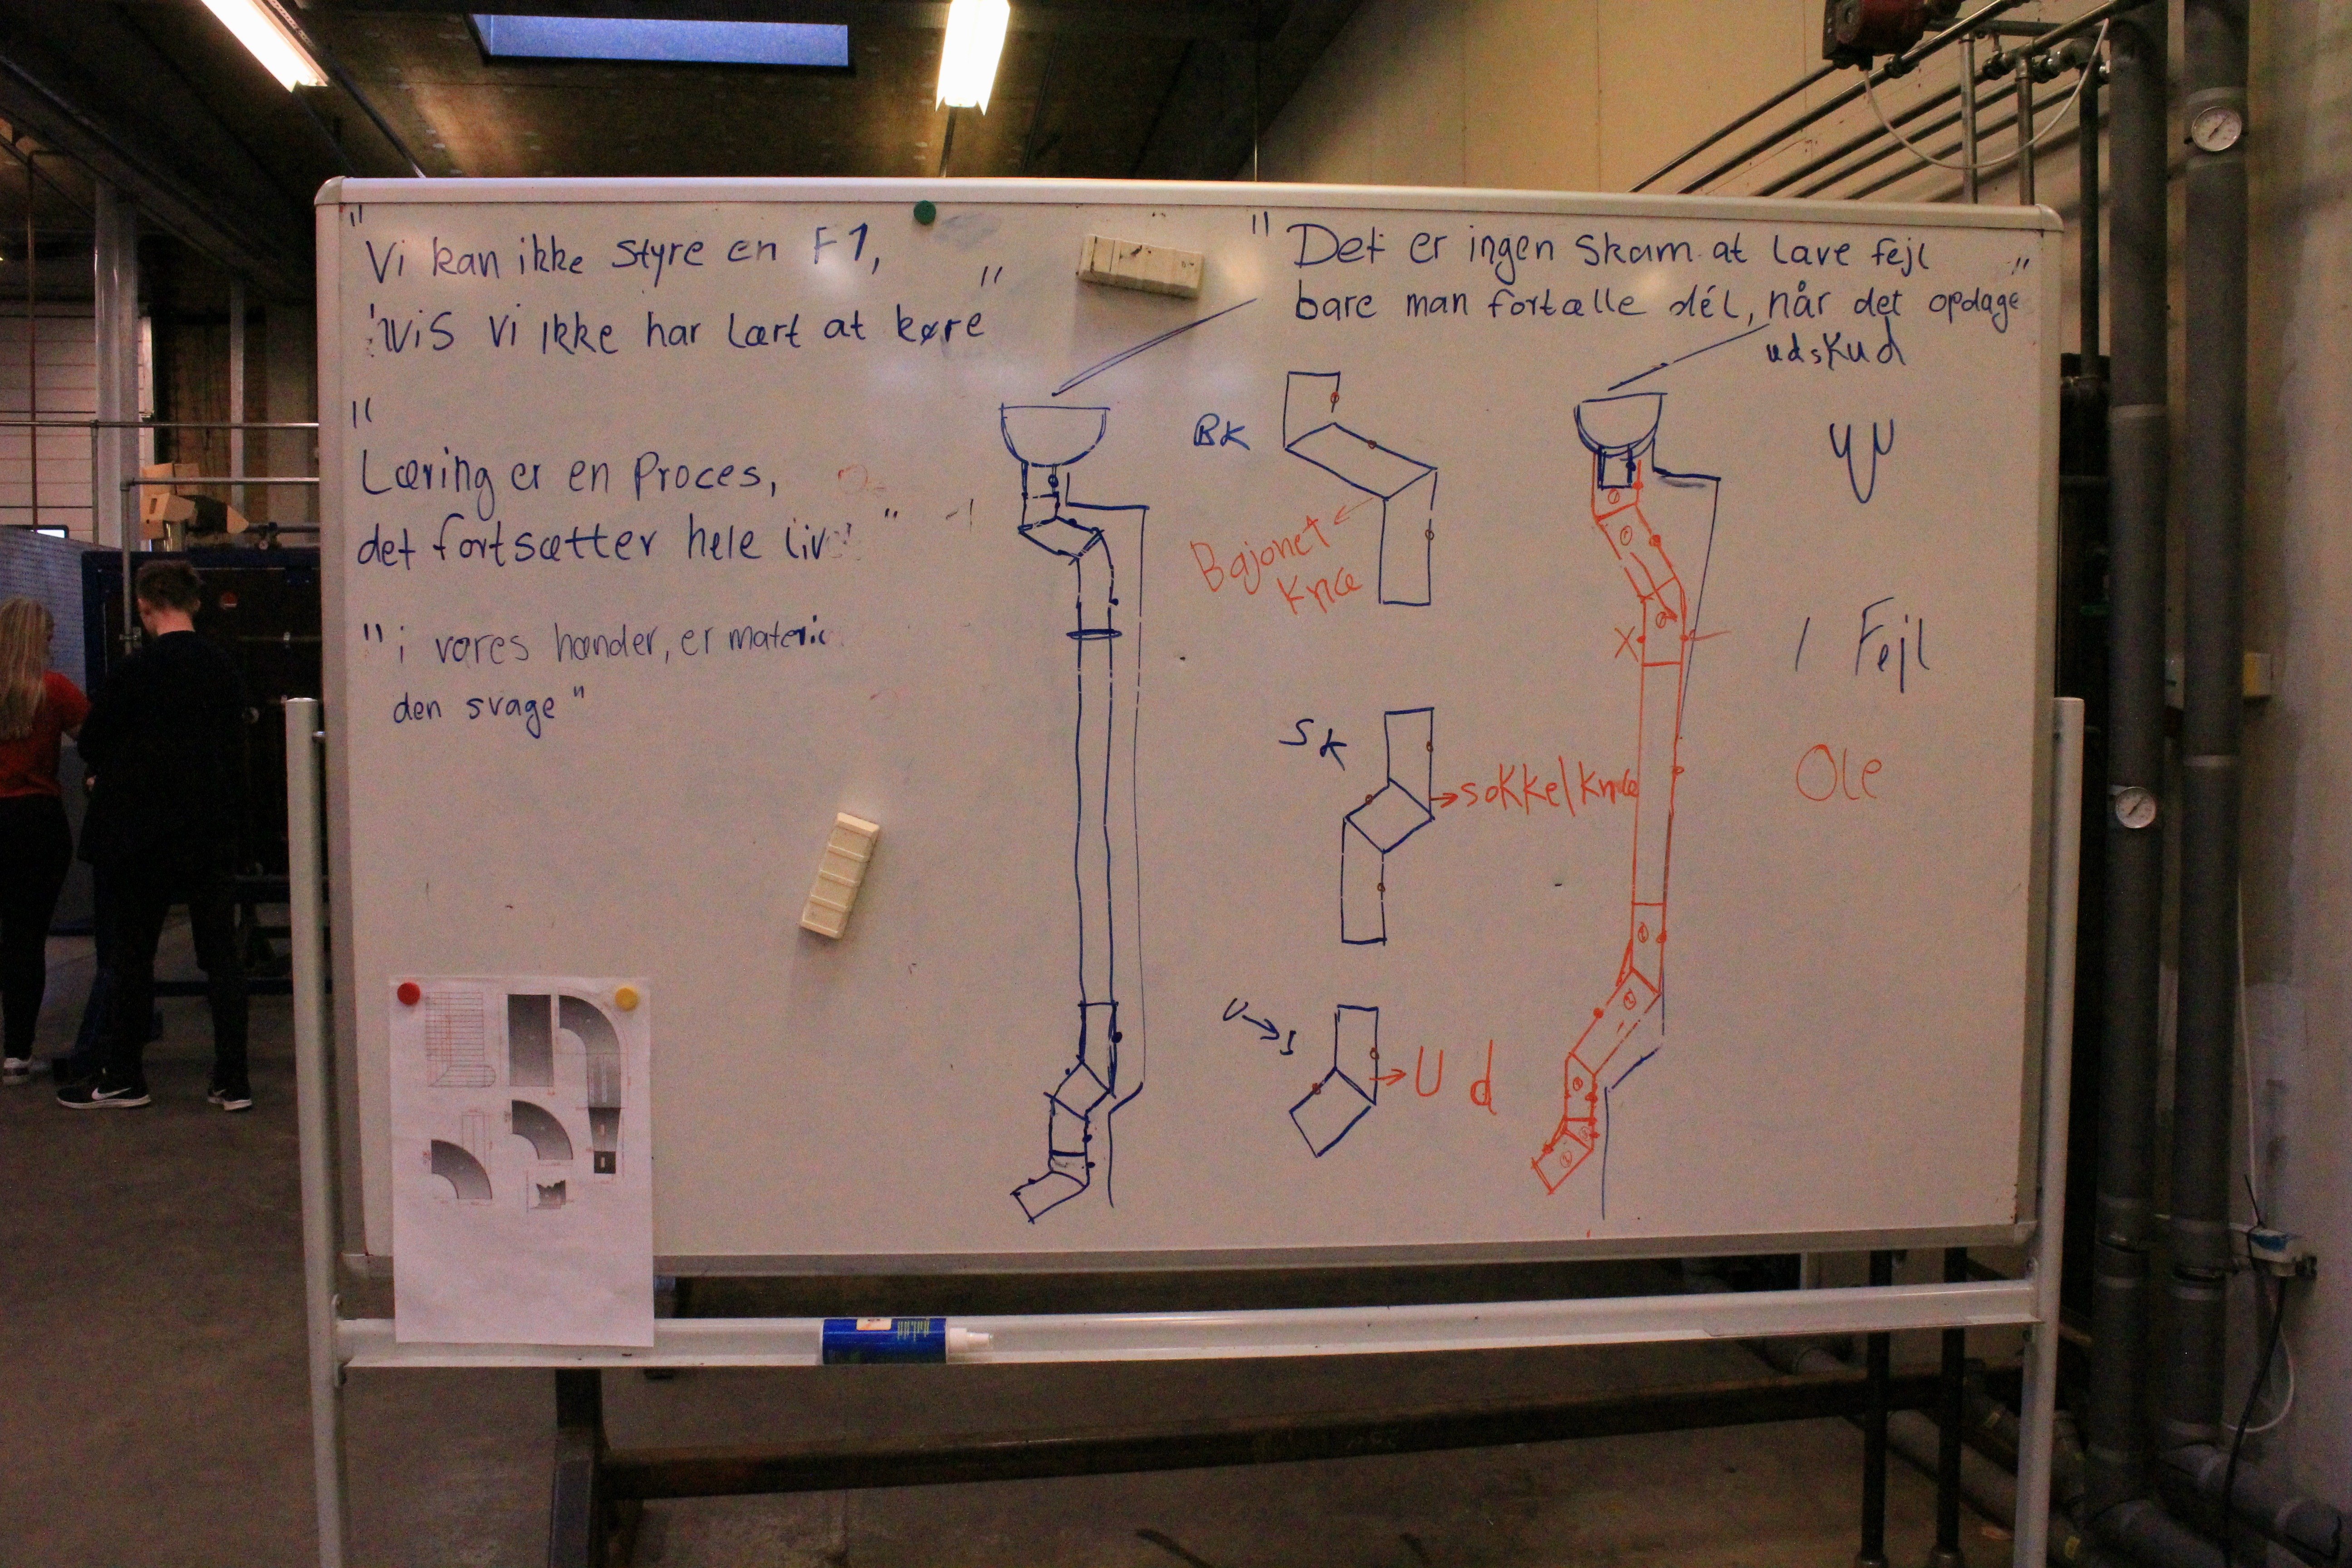 "Vi kan ikke styre en F1,
Vis vi ikke har lært at køre"
"Det er ingen skam at lave fejl
bare man fortælle dél, når det opdage"
udskud
"Læring er en Proces,
det fortsætter hele liv "
"i vores hænder, er materi
den svage"
BK
Bajonet
Knæ
SK
sokkelknæ
U → S
U d
1 Fejl
Ole